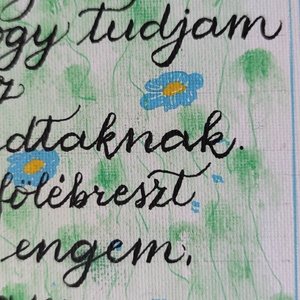 ogy tudjam
z
dtaknak.
fölébreszt
engem,